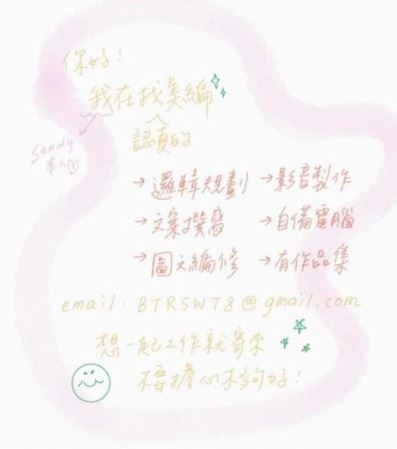 你好!
我在找美編
認真的
Sandy
本人♡
→邏輯規劃 →影音製作
→文案撰寫 →自備電腦
→圖文編修 →有作品集
email: BTRSWT8@gmail.com
想一起工作就寄來
不要擔心不夠好!